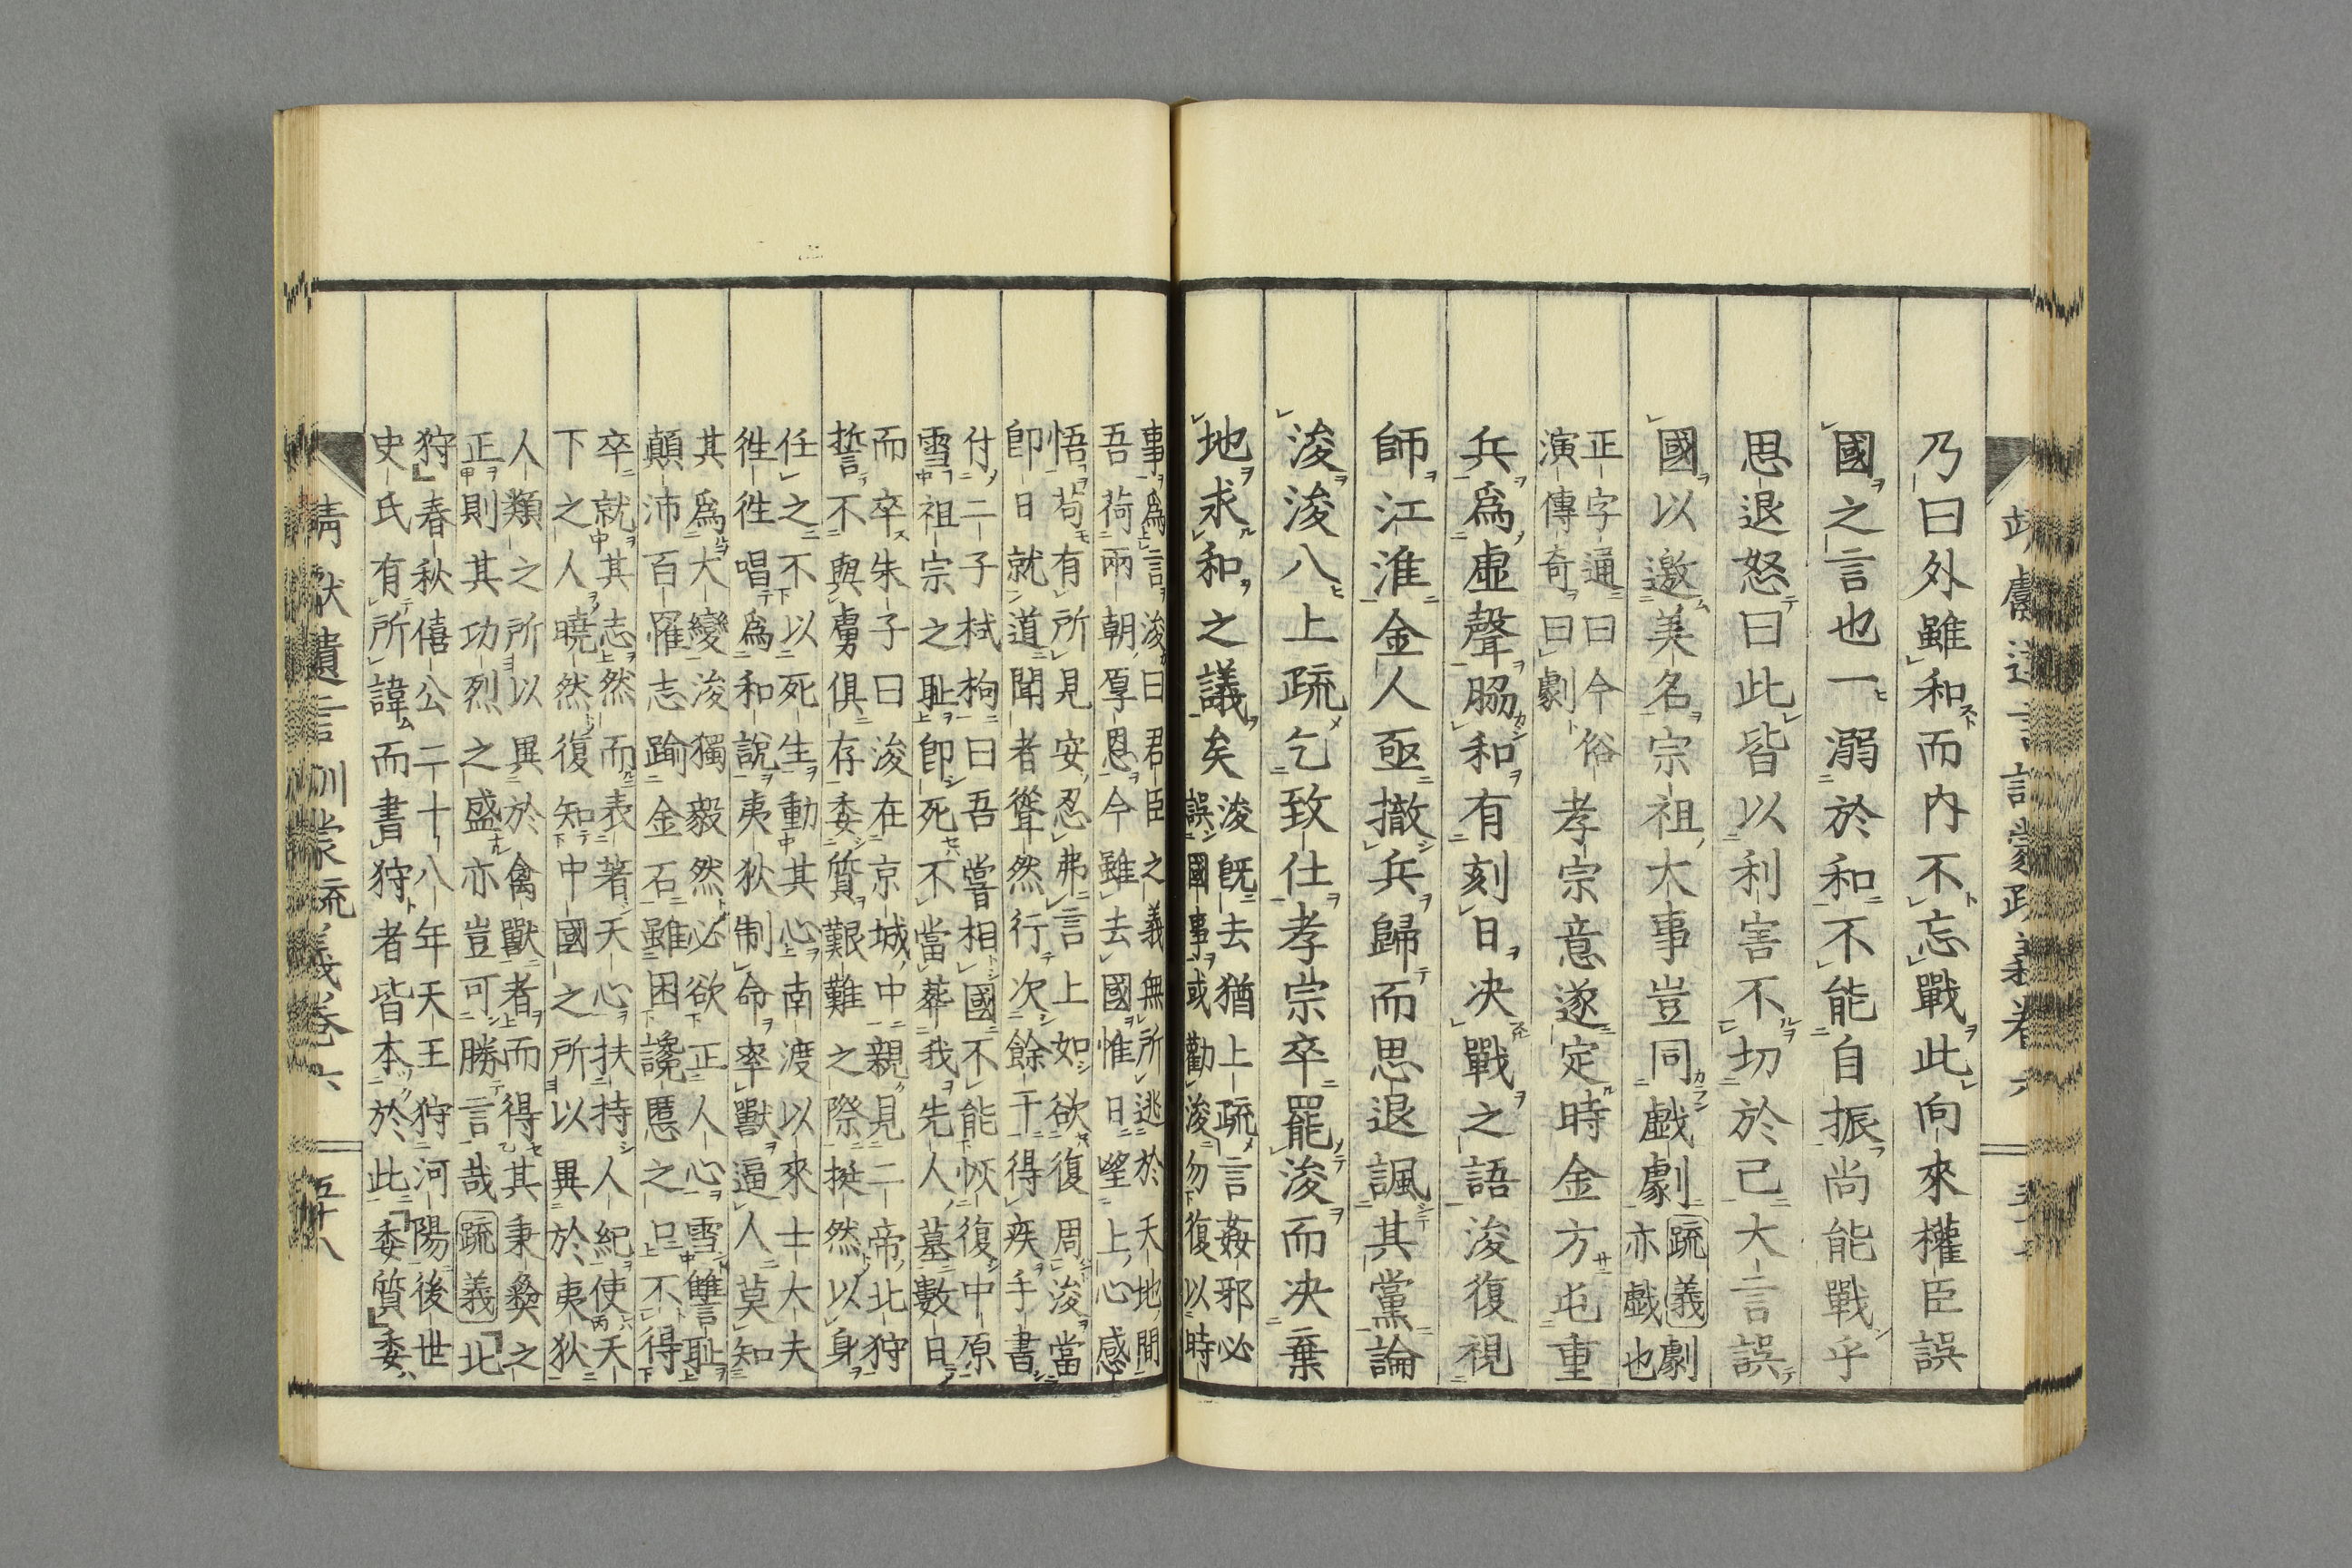 乃曰外雖和而内不忘戰此向來權臣誤
國之言也一溺於和不能自振尚能戰乎
思退怒曰此皆以利害不切於己大言誤
國以邀美名宗祖大事豈同戯劇疏義劇
亦戯也
正字通曰今俗
演傳奇曰劇
孝宗意遂定時金方屯重
兵爲虛聲脇和有刻日决戰之語浚復視
師江淮金人亟撤兵歸而思退諷其黨論
浚浚八上疏乞致仕孝宗卒罷浚而决棄
地求和之議矣
浚既去猶上疏言姦邪必
誤國事或勸浚勿復以時
事爲言浚曰君臣之義無所逃於天地間
吾荷兩朝厚恩今雖去國惟日望上心感
悟苟有所見安忍弗言上如欲復周浚當
卽日就道聞者聳然行次餘干得疾手書
付二子栻枸曰吾嘗相國不能恢復中原
雪祖宗之耻卽死不當葬我先人墓數日
而卒朱子曰浚在京城中親見二帝北狩
誓不與虜俱存委質艱難之際挺然以身
任之不以死生動其心南渡以來士大夫
徃徃唱爲和說夷狄制命率獸逼人莫知
其爲大變浚獨毅然必欲正人心雪讐耻
顛沛百罹志踰金石雖困讒慝之口不得
卒就其志然而表著天心扶持人紀使天
下之人曉然復知中國之所以異於夷狄
人類之所以異於禽獸者而得其秉彝之
正則其功烈之盛亦豈可勝言哉疏義北
狩春秋僖公二十八年天王狩河陽後世
史氏有所諱而書狩者皆本於此委質委
靖獻遺言訓蒙疏義卷六 五十八